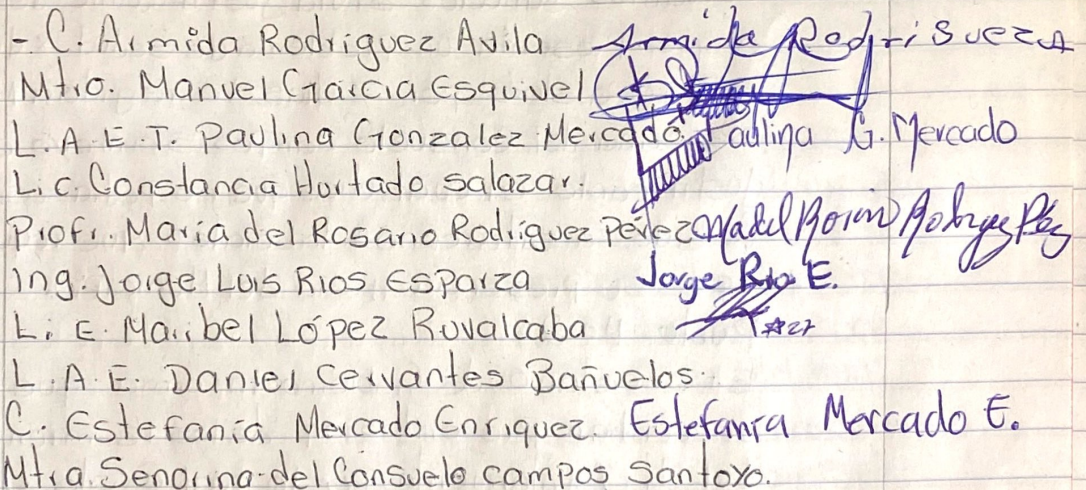 - C. Armida Rodriguez Avila Armida Rodriguez A
Mtro. Manuel García Esquivel
L.A.E.T. Paulina Gonzalez Mercado. Paulina G. Mercado
Lic. Constancia Hurtado Salazar.
Profr. María del Rosario Rodríguez Pérez Ma del Rosario Rodríguez Pérez
Ing. Jorge Luis Rios Esparza Jorge Rio E.
L.i E. Maribel López Ruvalcaba #27
L.A.E. Daniel Cervantes Bañuelos.
C. Estefanía Mercado Enriquez. Estefanía Mercado E.
Mtra. Senorina del Consuelo campos Santoyo.